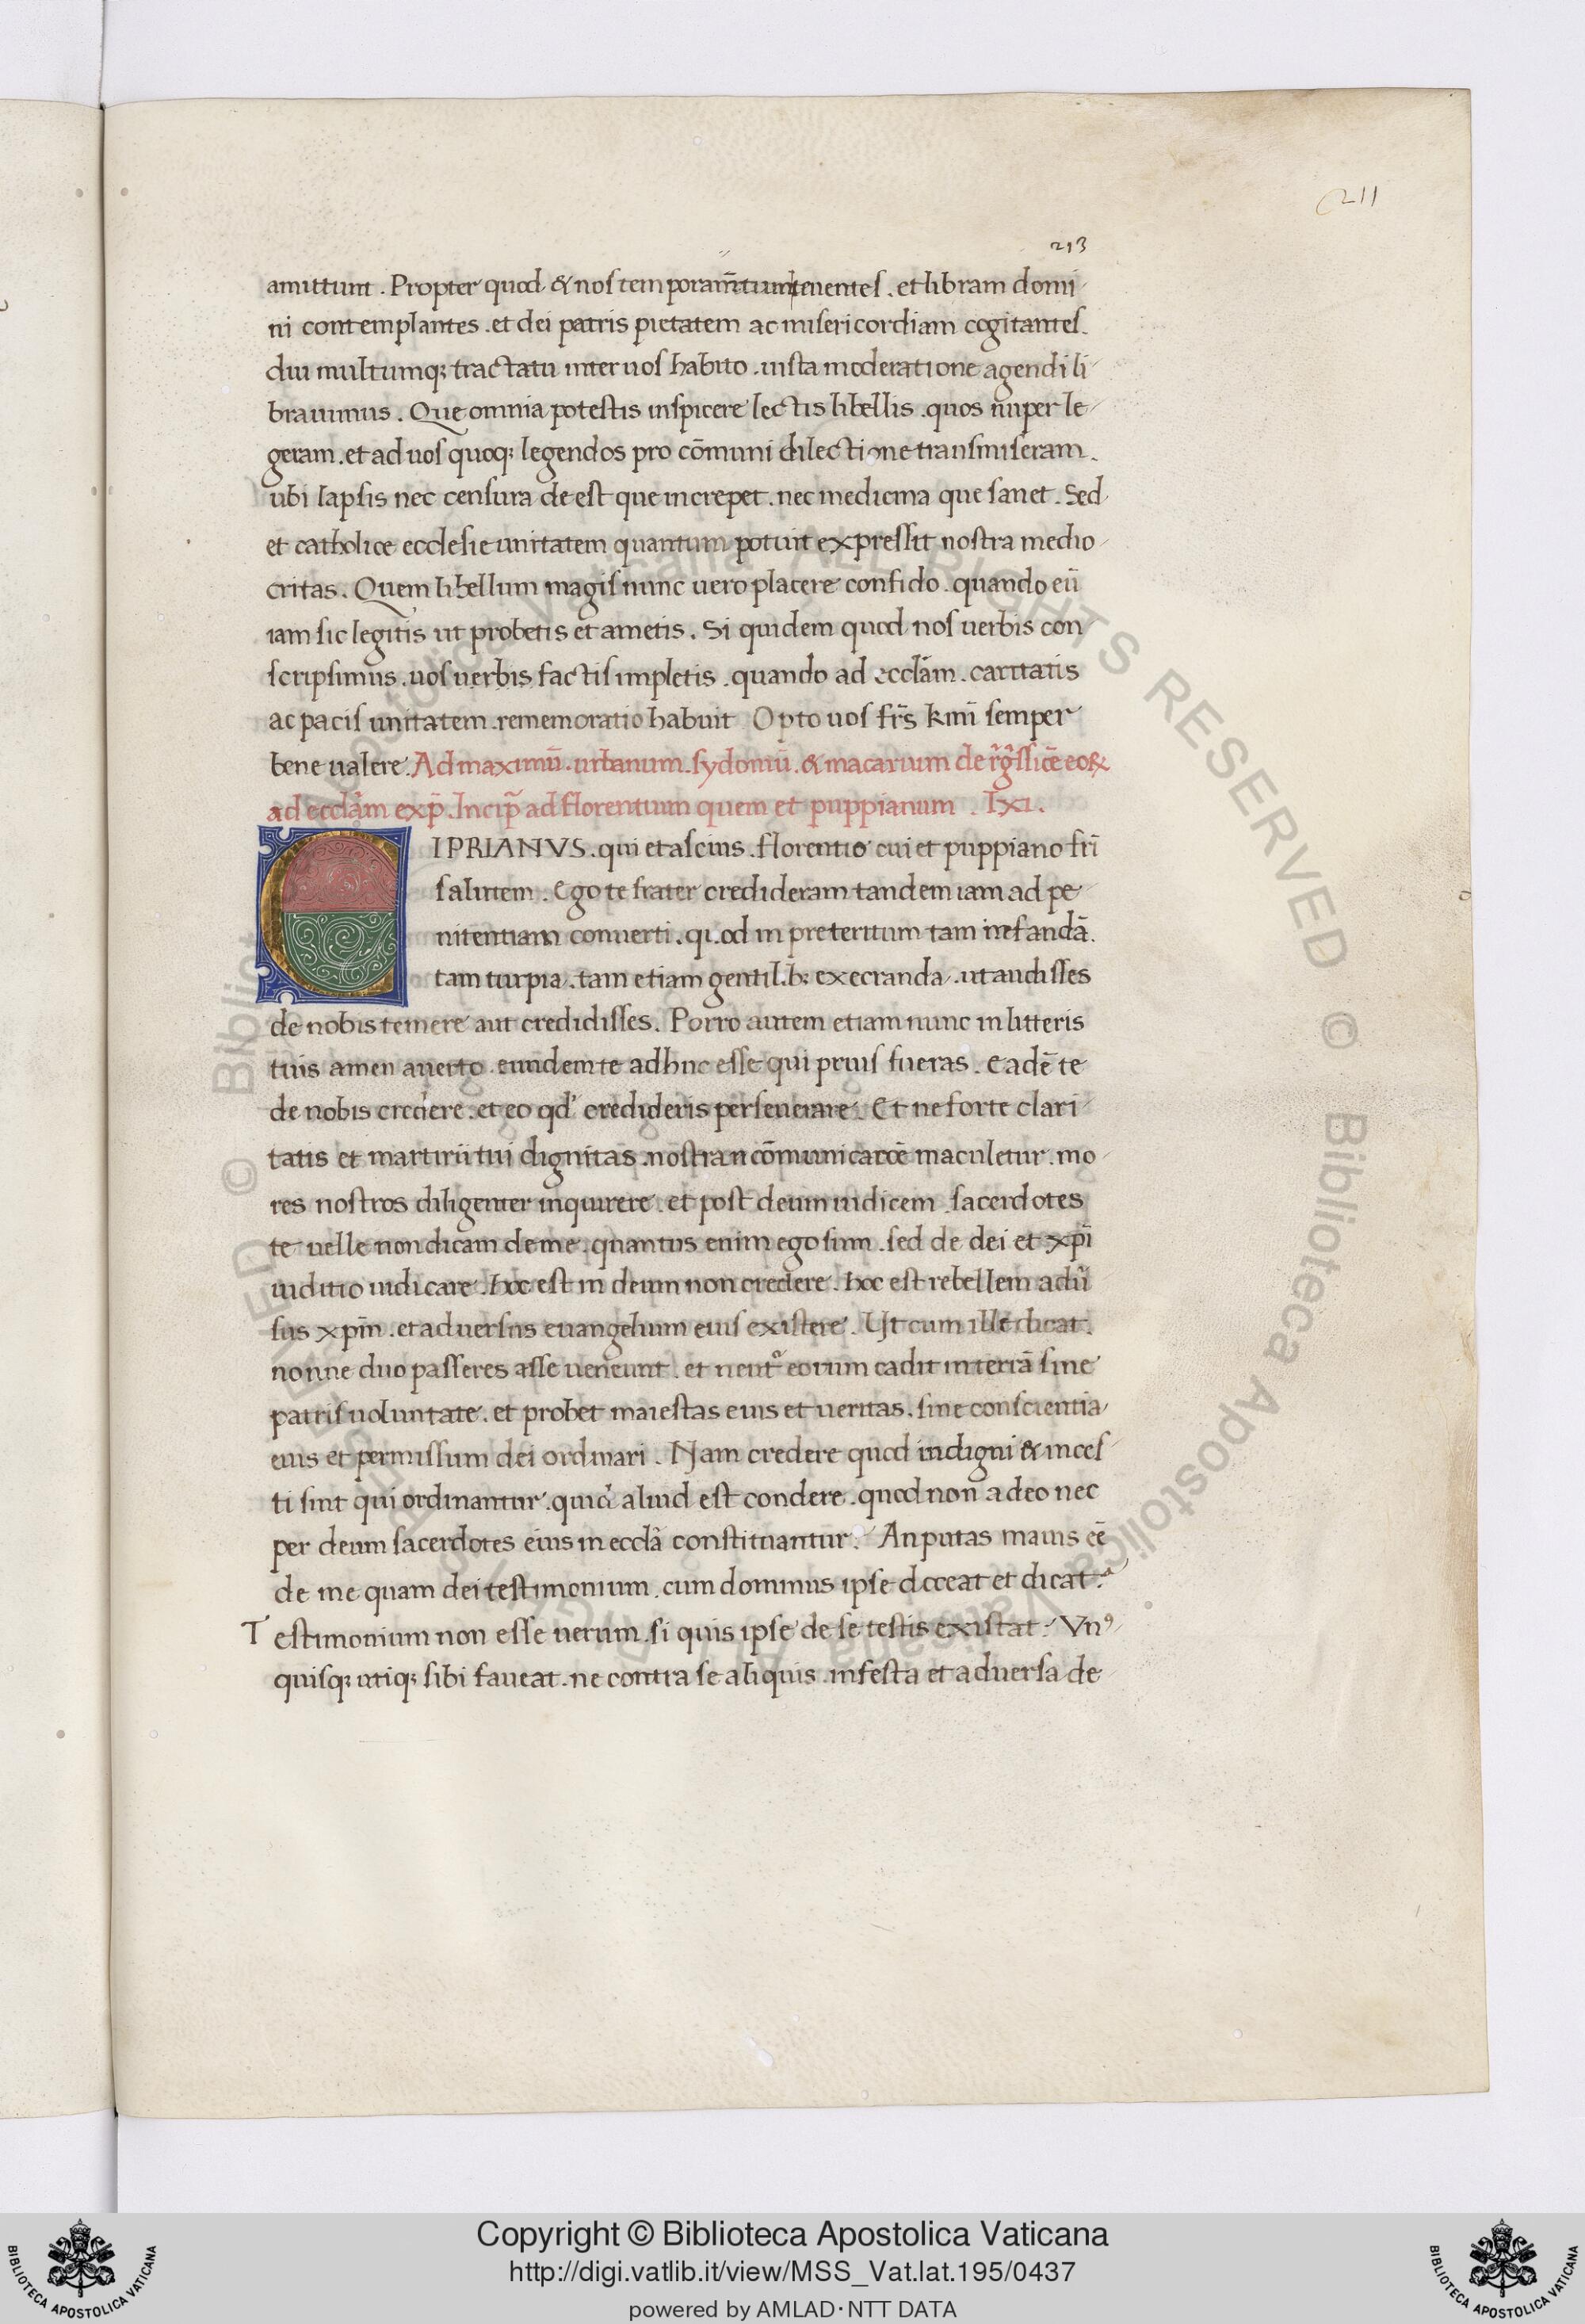 211
213
amittunt. Propter quod & nos temporam̄tum tenentes. et libram domi
ni contemplantes. et dei patris pietatem ac misericordiam cogitantes.
diu multumq; tractatu inter uos habito. iusta moderatione agendi li
brauimus. Que omnia potestis inspicere lectis libellis. quos nuper le
geram. et ad uos quoq; legendos pro cōmuni dilectione transmiseram.
ubi lapsis nec censura de est que increpet. nec medicina que sanet. Sed
et catholice ecclesie unitatem quantum potuit expressit nostra medio
critas. Quem libellum magis nunc uero placere confido. quando eū
iam sic legitis ut probetis et ametis. Si quidem quod nos uerbis con
scripsimus. uos uerbis factis impletis. quando ad eccl̄am. caritatis
ac pacis unitatem. rememoratio habuit Opto uos fr̄s kmī semper
bene ualere. Ad maximū. urbanum. sydoniū. & macarium de
ad eccl̄am exp̄. Incip̄ ad florentium quem et puppianum. Lxi.
CIPRIANVS. qui et ascius. florentio cui et puppiano fr̄i
salutem. Ego te frater credideram tandem iam ad pe
nitentiam conuerti. quod in preteritum tam nefandā.
tam turpia. tam etiam gentilib; execranda. ut audisses
de nobis temere aut credidisses. Porro autem etiam nunc in litteris
tuis amen auerto. eundem te adhuc esse qui prius fueras. eadē te
de nobis credere. et eo qd' credideris perseuerare. Et ne forte clari
tatis et martirii tui dignitas. nostra n cōmunicatōe maculetur. mo
res nostros diligenter inquirere. et post deum iudicem. sacerdotes
te uelle non dicam de me. quantus enim ego sum. sed de dei et xp̄i
iuditio iudicare. hoc est in deum non credere. hoc est rebellem adū
sus xp̄m. et aduersus euangelium eius existere. Ut cum ille dicat.
nonne duo passeres asse ueneunt. et neut' eorum cadit in terrā sine
patris uoluntate. et probet maiestas eius et ueritas. sine conscientia
eius et permissum dei ordinari. Nam credere quod indigni & inces
ti sint qui ordinantur. quid aliud est condere. quod non adeo nec
per deum sacerdotes eius in eccl̄a constituantur. An putas maius eē
de me quam dei testimonium. cum dominus ipse doceat et dicat.
Testimonium non esse uerum. si quis ipse de se testis existat. Vn9
quisq; utiq; sibi faueat. ne contra se aliquis. infesta et aduersa de
Copyright © Biblioteca Apostolica Vaticana
http://digi.vatlib.it/view/MSS_Vat.lat.195/0437
powered by AMLAD·NTT DATA